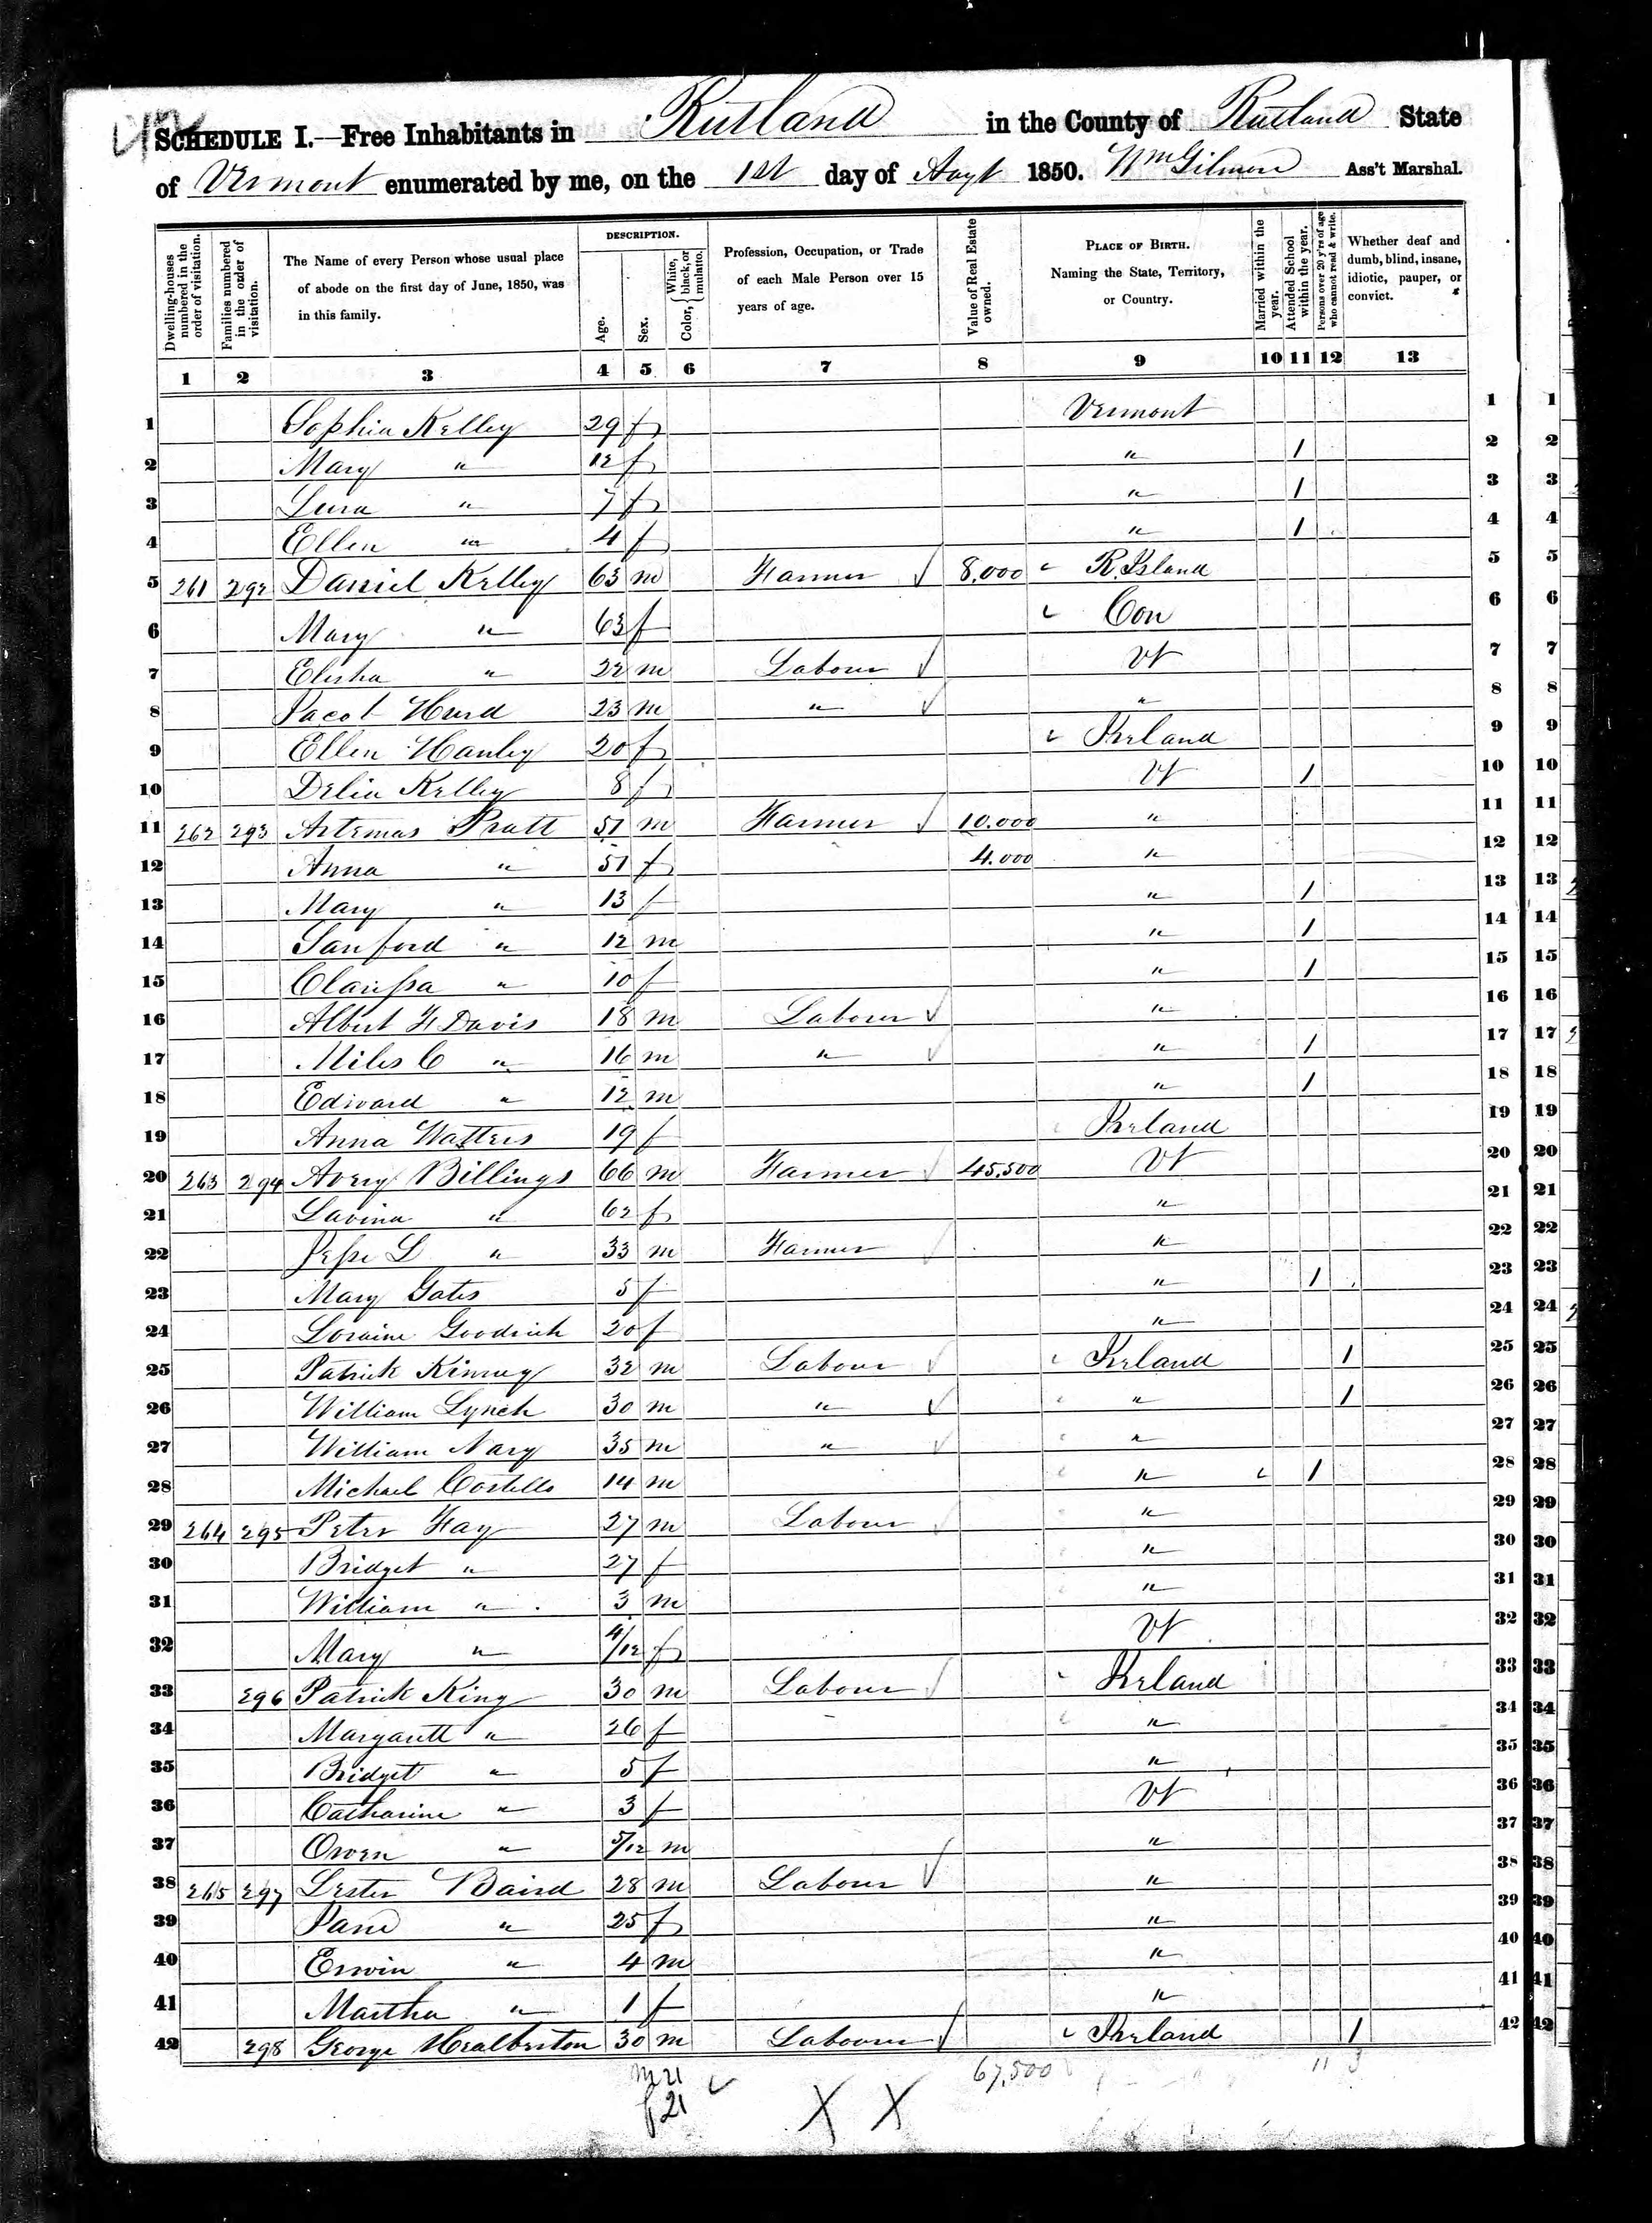 SCHEDULE I.—Free Inhabitants in Rutland in the County of Rutland State
of Vermont enumerated by me, on the 1st day of Augt 1850. Wm Gilmore Ass't Marshal.
Dwelling-houses numbered in the order of visitation.
Families numbered in the order of visitation.
The Name of every Person whose usual place of abode on the first day of June, 1850, was in this family.
DESCRIPTION.
Age.
Sex.
Color, { White, black, or mulatto.
Profession, Occupation, or Trade of each Male Person over 15 years of age.
Value of Real Estate owned.
PLACE OF BIRTH. Naming the State, Territory, or Country.
Married within the year.
Attended School within the year.
Persons over 20 y'rs of age who cannot read & write.
Whether deaf and dumb, blind, insane, idiotic, pauper, or convict.
1 2 3 4 5 6 7 8 9 10 11 12 13
1 Sophia Kelley 29 f Vermont 1 1
2 Mary " 12 f " 1 2 2
3 Lura " 7 f " 1 3 3
4 Ellen " 4 f " 1 4 4
5 261 292 Daniel Kelley 63 m Farmer 8,000 R. Island 5 5
6 Mary " 63 f Con 6 6
7 Elisha " 22 m Labour Vt 7 7
8 Jacob Hurd 23 m " " 8 8
9 Ellen Hanley 20 f Ireland 9 9
10 Delia Kelley 8 f Vt 1 10 10
11 262 293 Artemas Pratt 51 m Farmer 10.000 " 11 11
12 Anna " 51 f 4.000 " 12 12
13 Mary " 13 f " 1 13 13
14 Sanford " 12 m " 1 14 14
15 Clarissa " 10 f " 1 15 15
16 Albert H Davis 18 m Labour " 16 16
17 Miles C " 16 m " " 1 17 17
18 Edward " 12 m " 1 18 18
19 Anna Watters 19 f Ireland 19 19
20 263 294 Avery Billings 66 m Farmer 45,500 Vt 20 20
21 Lavina " 62 f " 21 21
22 Jesse L " 33 m Farmer " 22 22
23 Mary Gates 5 f " 1 23 23
24 Loraine Goodrich 20 f " 24 24
25 Patrick Kinney 32 m Labour Ireland 1 25 25
26 William Lynch 30 m " " 1 26 26
27 William Nary 35 m " " 27 27
28 Michael Costello 14 m " 1 28 28
29 264 295 Peter Fay 27 m Labour " 29 29
30 Bridget " 27 f " 30 30
31 William " 3 m " 31 31
32 Mary " 4/12 f Vt 32 32
33 296 Patrick King 30 m Labour Ireland 33 33
34 Margarett " 26 f " 34 34
35 Bridget " 5 f " 35 35
36 Catharine " 3 f Vt 36 36
37 Owen " 5/12 m " 37 37
38 265 297 Lester Baird 28 m Labour " 38 38
39 Jane " 25 f " 39 39
40 Erwin " 4 m " 40 40
41 Martha " 1 f " 41 41
42 298 George 30 m Labour Ireland 1 42 42
m 21 67,500 11 3
f 21 X X